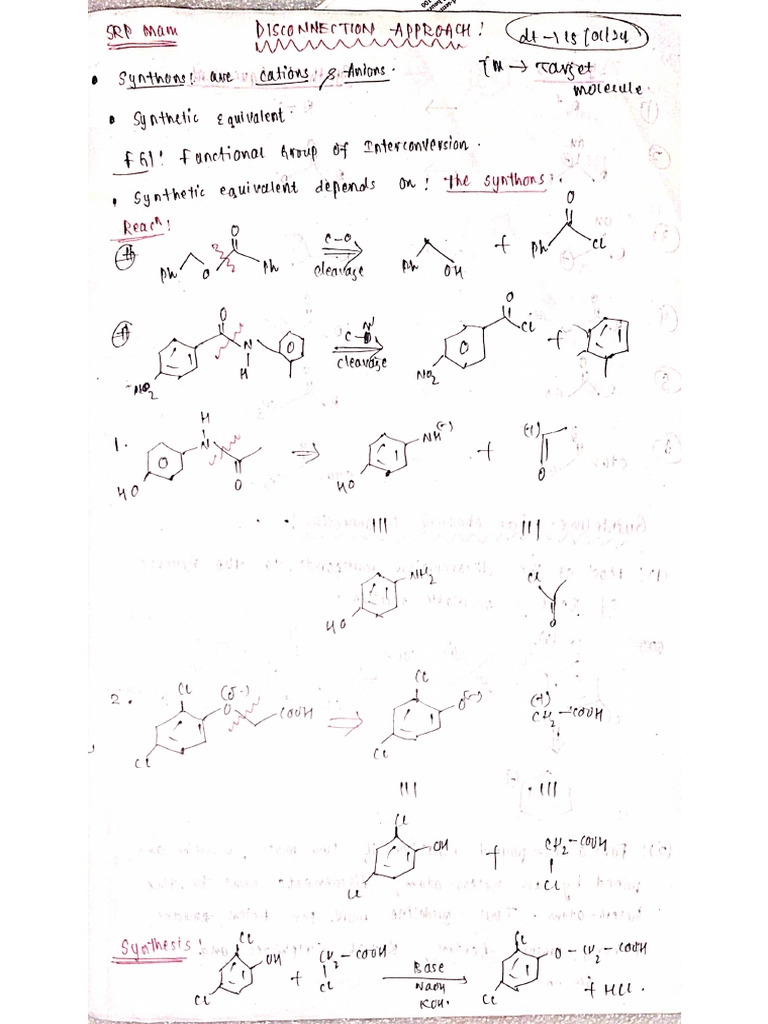 SRP Mam DISCONNECTION APPROACH! dt → 15/01/24
• Synthons: are cations & Anions. TM → Target molecule.
• Synthetic Equivalent.
FGI: Functional Group of Interconversion.
• Synthetic equivalent depends on: The synthons.
Reacn:
Ph O O Ph C-O cleavage Ph OH + Ph O Cl
NO2 O N H C-N cleavage NO2 O Cl +
1. HO N H O ⇒ HO NH(-) + (+) O
||| |||
HO NH2 Cl O
2. Cl Cl O (δ-) COOH ⇒ Cl Cl O(-) (+) CH2-COOH
||| |||
Cl Cl OH + CH2-COOH Cl
Synthesis: Cl Cl OH + CH2-COOH Cl Base NaOH KOH. Cl Cl O-CH2-COOH + HCl.